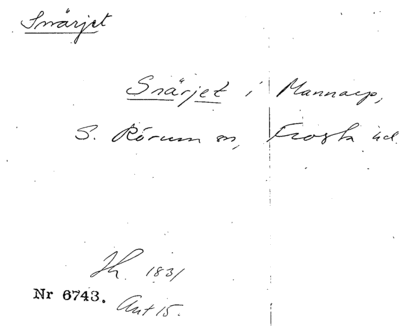 Snärjet
Snärjet i Mannarp,
S. Rörum sn, Frosta hd.
Jh. 1831
Nr 6743.
Ant 15.